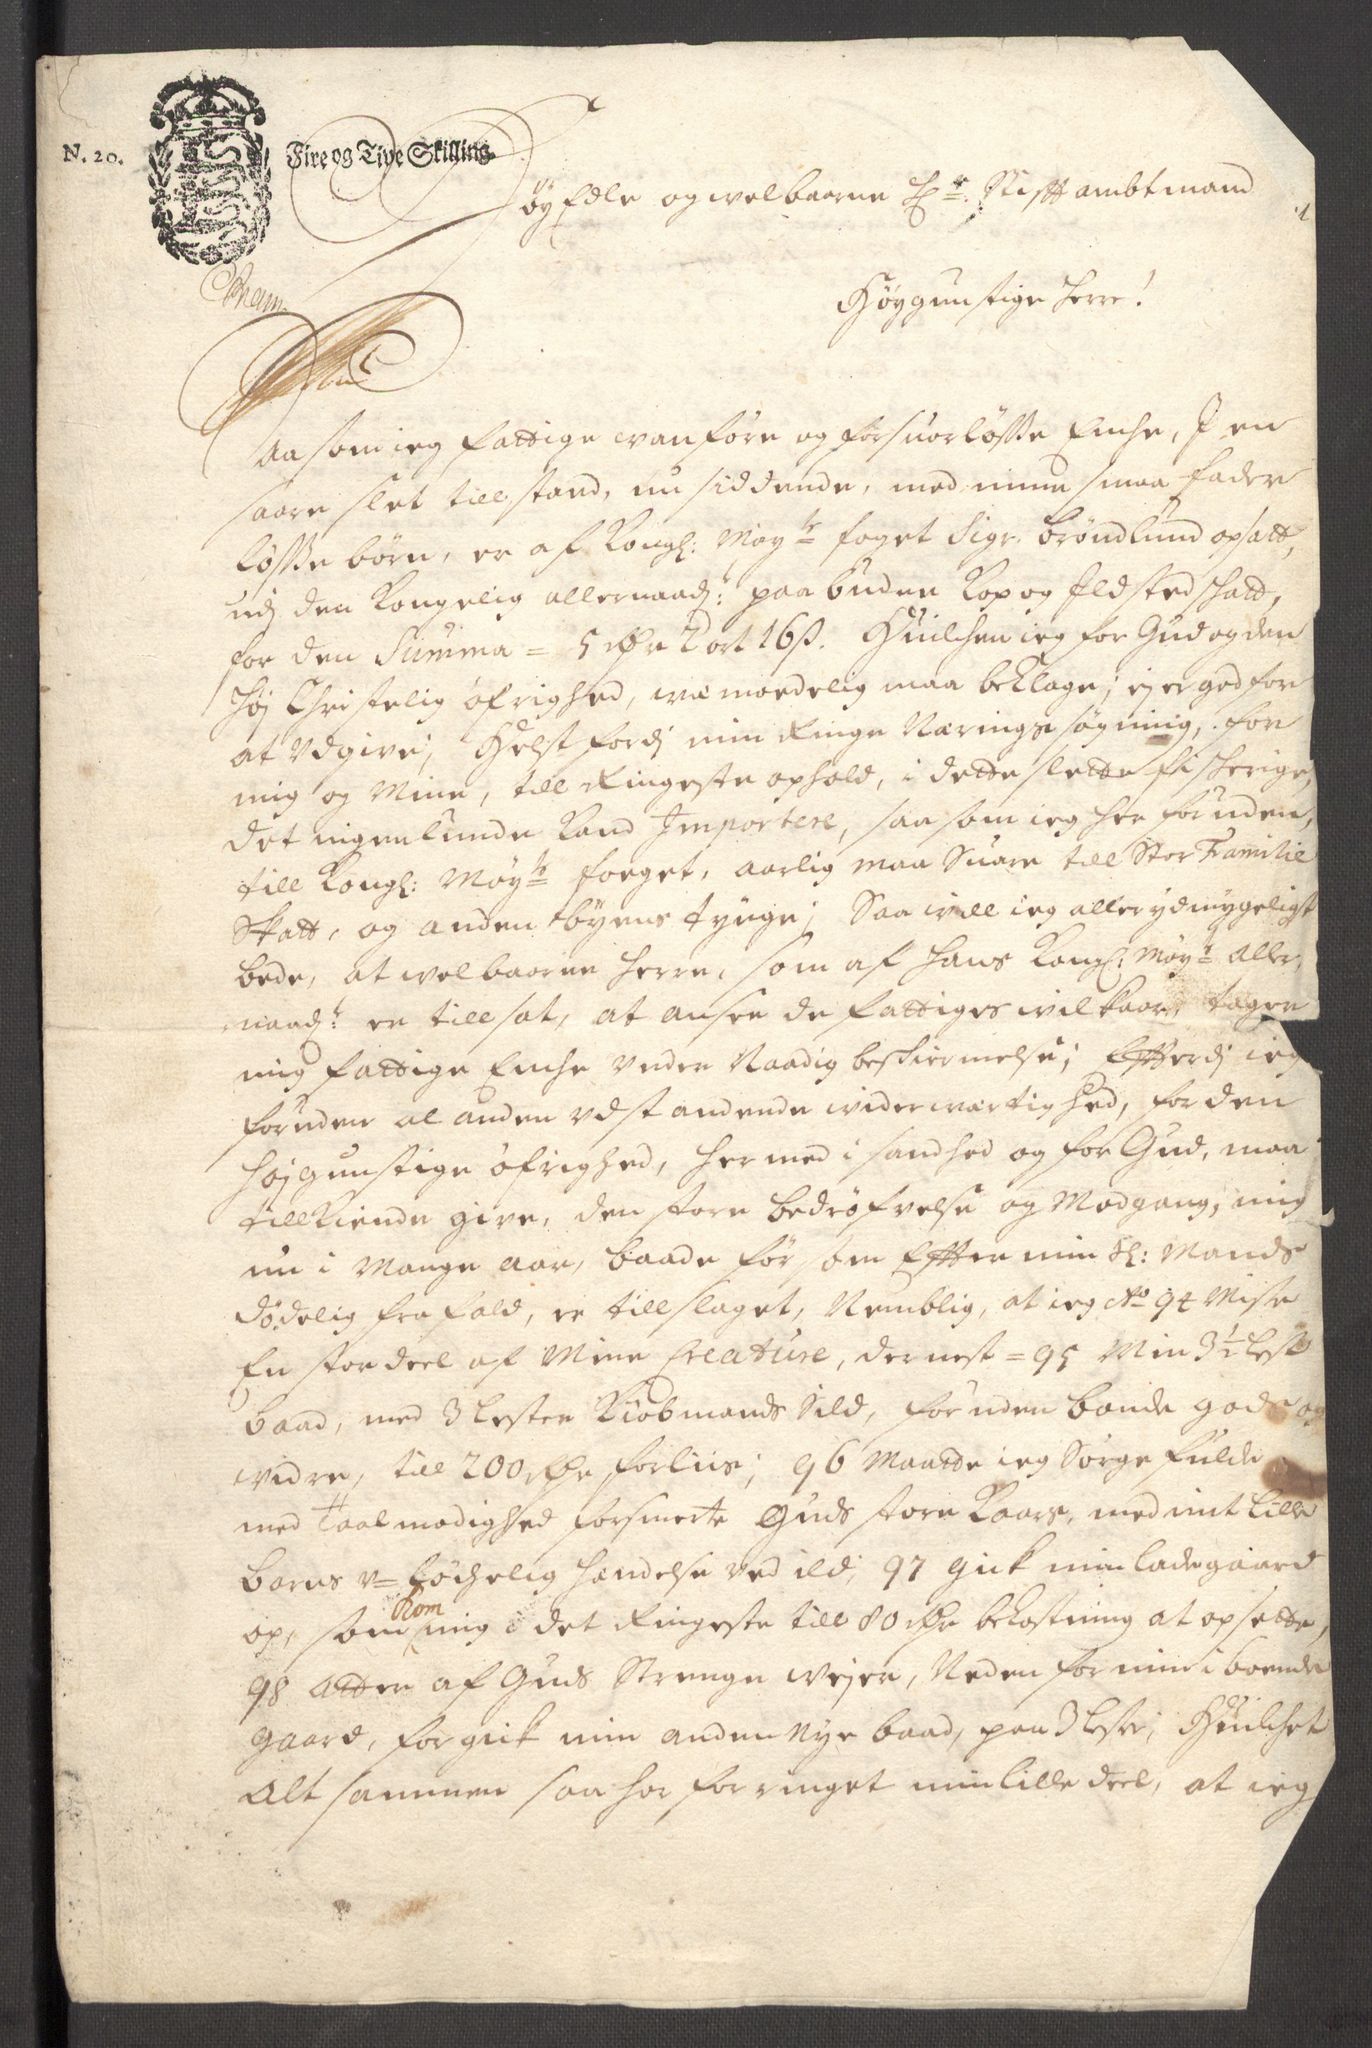 N. 20.
Fire og Tive Skilling
Høy Edle og welbaarne Hr. Stifft ambtmand
Høygunstige Herre!
Saasom ieg fattige wanføre og forsuorløsse Enche, J en
saare slet tillstand, nu siddende, med mine smaa fader
løsse børn, er af Kongl: May:ts foget Sigr. Brøndlund opsatt,
udj den Kongelig allernaad: paabudne Kop og Jldstedschatt,
for den Summa = 5 rdr 2 ort 16 ß. Huilchen ieg for Gud og den
Høj Christelig Øfrighed, wemoedelig maa beklage; ej er god for
at Udgive; Helst fordj min Ringe Nærings søgning, for
mig og Mine, till Ringeste ophold, i dette slette fischerige,
det ingenlunde Kand Importere, saa som ieg her foruden,
till Kongl: May:ts foeget, aarlig maa Suare till Stor Familie
Skatt, og anden byens tynge; Saa will ieg aller ydmygeligst
bede, at welbaarne Herre, som af Hans Kongl: May:t aller
naad:t er tillsat, at ansee de fattiges wilkaar, tager
mig fattige Enche under Naadig beskiermelse; Effterdj ieg
foruden al anden udstandende widerwærtighed, for den
Højgunstige Øfrighed, hermed i sandhed og for Gud, maa
tillkiende give, den store bedrøfvelse og Modgang, mig
nu i Mange aar, baade før som Effter min Sl: Mands
dødelig frafald, er tillslaget, Nemblig, at ieg Ao 94 Miste
En stor deel af Mine Creature, dernest = 95 Min 3 1/2 lest
baad, med 3 lester Kiøbmands Sild, foruden bonde gods og
vidre, till 200 rdr forliis; 96 Maatte ieg Sorgefulde
med Taalmodighed forsmerte Guds store Kaars, med mit Lille
barns u=løchelig hendelse ved ild; 97 gick min ladegaard
op, som Kom mig i det Ringeste till 80 rdr bekostning at opsette,
98 atter af Guds Strenge Vejer, Neden for min iboende
gaard, forgick min anden Nye baad, paa 3 lester; Huilchet
Alt sammen saa har forringet min lille deel, at ieg